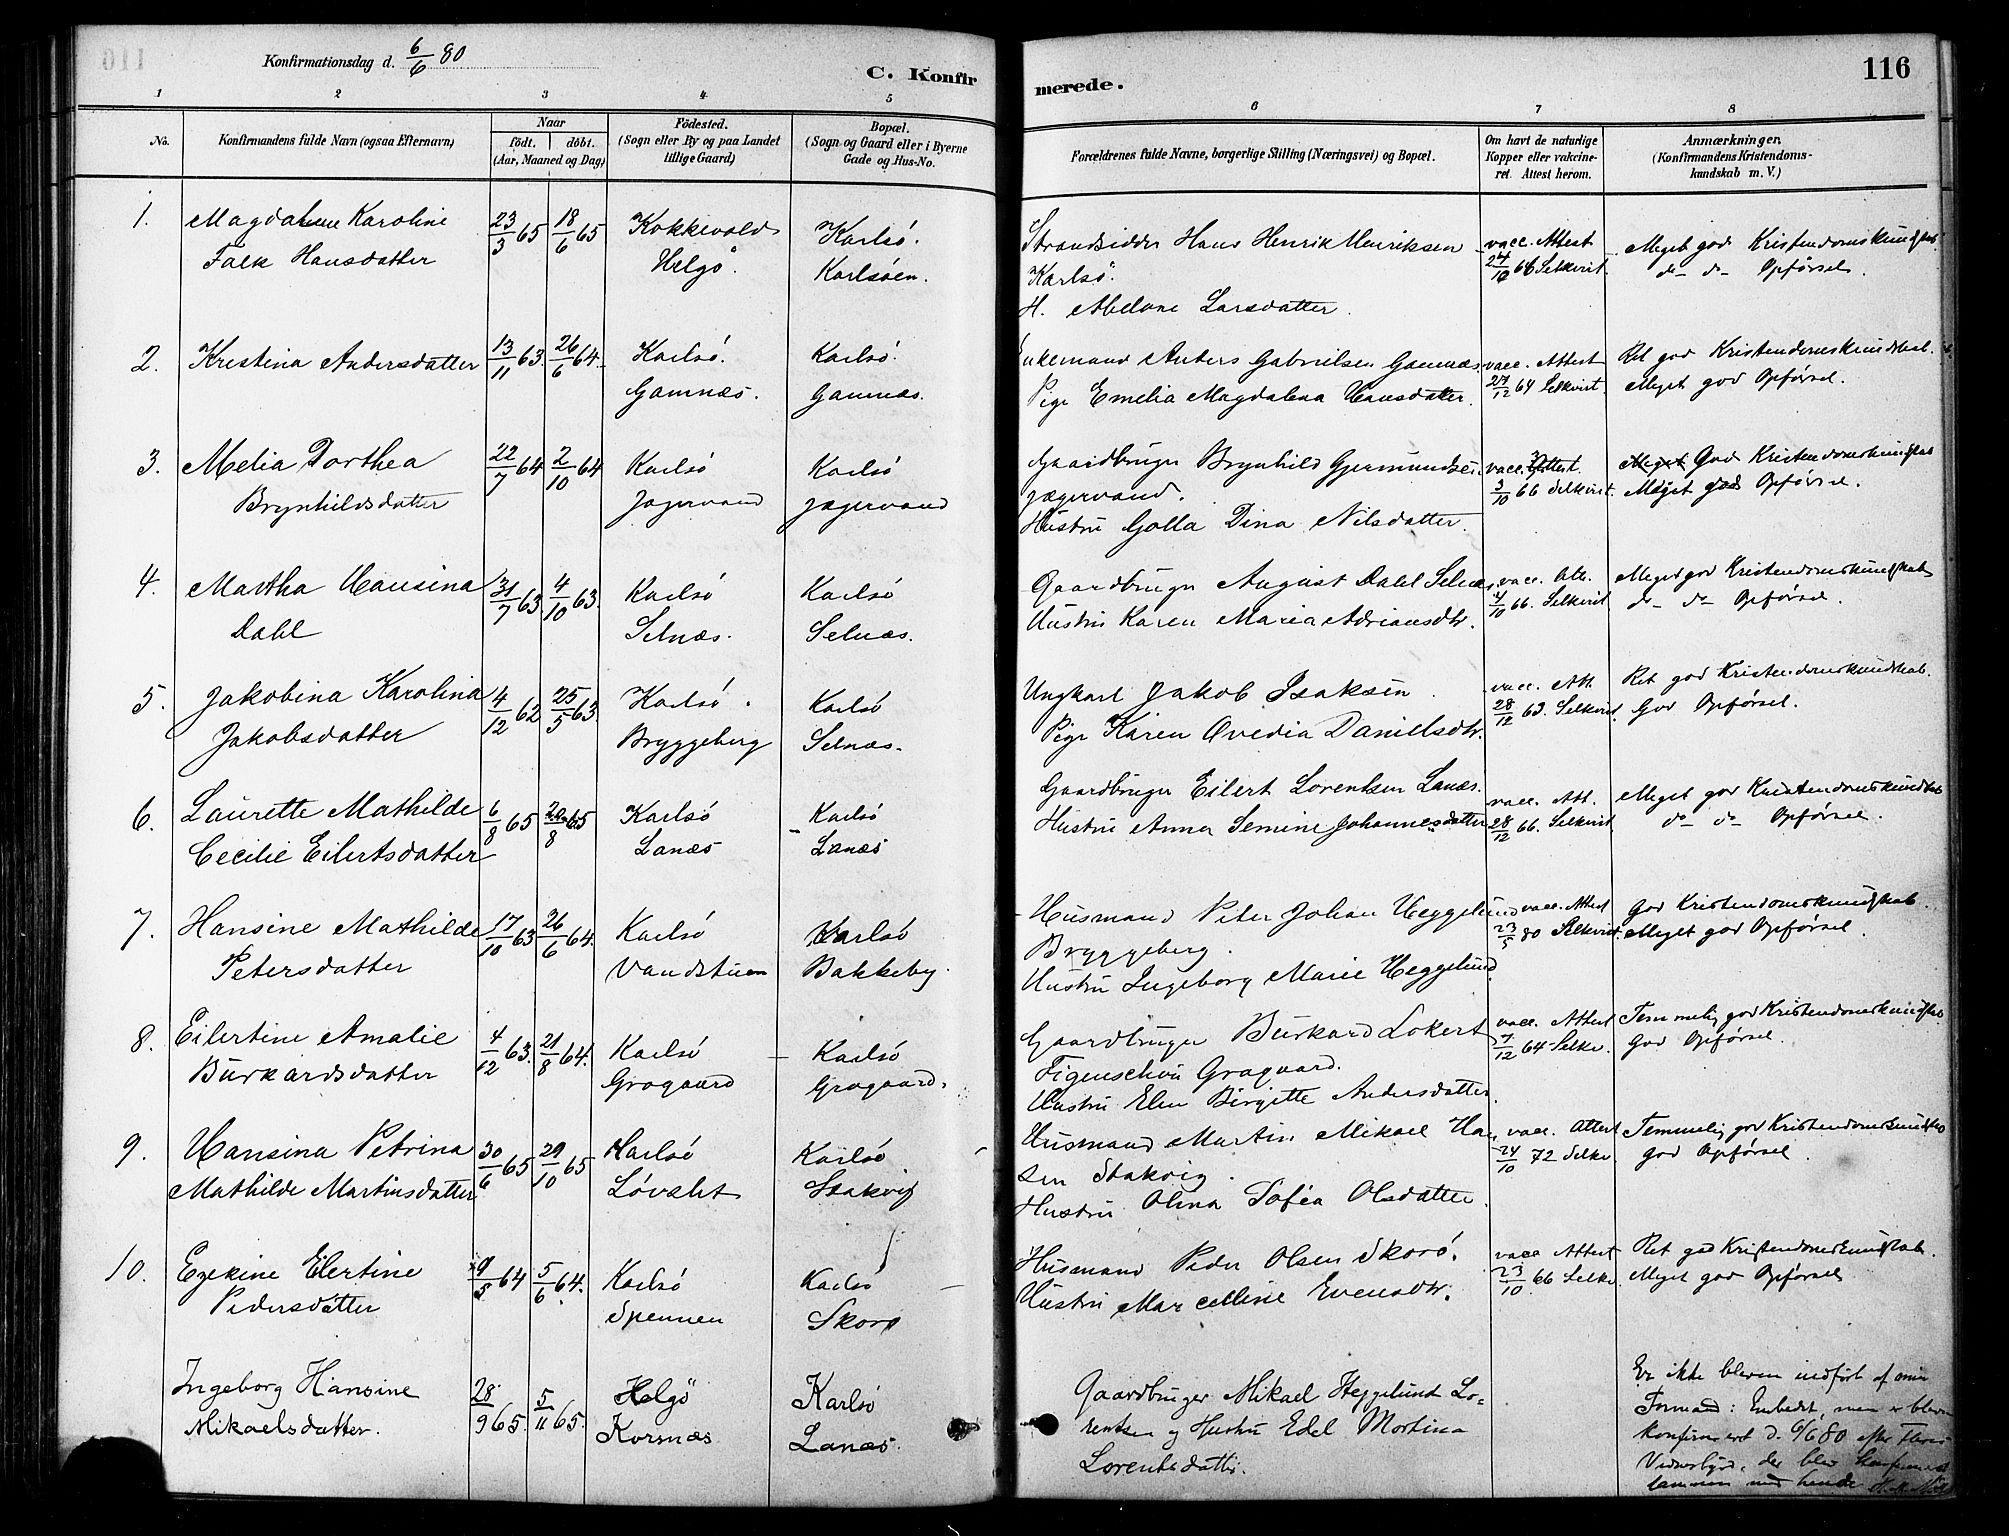 Konfirmationsdag d. 6/6 80
C. Konfirmerede.
116
1 2 3 4 5 6 7 8
No.
Konfirmandens fulde Navn (ogsaa Efternavn)
Naar
født. døbt.
(Aar, Maaned og Dag)
Fødested.
(Sogn eller By og paa Landet
tillige Gaard)
Bopæl.
(Sogn og Gaard eller i Byerne
Gade og Hus-No.
Forældrenes fulde Navne, borgerlige Stilling (Næringsvei) og Bopæl.
Om havt de naturlige
Kopper eller vakcine-
ret. Attest herom.
Anmærkninger.
(Konfirmandens Kristendoms-
kundskab m. V.)
1. Magdalene Karoline 23/3 65 18/6 65 Karlsö. Strandsidder Hans Henrik Henriksen vacc. Attest Meget god Kristendomskundskab
Falk Hansdatter Helgö. Karlsöen. Karlsö. 66 Selkvist d- d- Opførsel.
H. Abelone Larsdatter.
2. Krestina Andersdatter 13/11 63. 26/6 64. Karlsö. Karlsö. Enkemand Anders Gabrielsen Gamnæs. vacc. Attest Ret god Kristendomskundskab.
Gamnæs. Gamnæs. Pige Emelia Magdalena Hansdatter. 27/12 64 Selkvist. Meget god Opførsel.
3. Melia Dorthea 22/7 64 2/10 64 Karlsö Karlsö Gaardbruger Brynhild Gjermundsen vacc. Attest. Meget God Kristendomskundskab
Brynhildsdatter Jægervand Jægervand Jægervand. 3/10 66 Selkvist. Meget god Opførsel.
Hustru Golla Dina Nilsdatter.
4. Martha Hansina 31/7 63 4/10 63. Karlsö Karlsö Gaardbruger August Dahl Selnæs vacc. Att. Meget god Kristendomskundskab
Dahl Selnæs. Selnæs. Hustru Karen Maria Adriansdtr. 4/10 66. Selkvist d- d- Opførsel.
5. Jakobina Karolina 4/12 62 25/5 63 Karlsö. Karlsö Ungkarl Jakob Isaksen. vacc. Att. Ret god Kristendomskundskab.
Jakobsdatter Bryggeberg Selnæs. Pige Karen Ovedia Danielsdtr. 28/12 63. Selkvist. God Opførsel.
6. Laurette Mathilde 6/8 65 20/8 65 Karlsö Karlsö Gaardbruger Eilert Lorentsen Lanæs. vacc. Att. Meget god Kristendomskundskab
Cecilie Eilertsdatter Lanæs Lanæs Hustru Anna Semine Johannesdatter 28/12 66. Selkvist d- d- Opførsel.
7. Hansine Mathilde 17/10 63 26/6 64. Karlsö Karlsö Husmand Peter Johan Heggelund vacc. Attest God Kristendomskundskab.
Petersdatter Vandstuen Bakkeby. Bryggeberg. 23/5 80 Selkvist. Meget god Opførsel.
Hustru Ingeborg Marie Heggelund.
8. Eilertine Amalie 4/12 63. 21/8 64. Karlsö Karlsö Gaardbruger Burkard Lokert vacc. Attest Temmelig god Kristendomskundskab
Burkardsdatter Grøgaard Grøgaard. Figenschou Grøgaard. 7/12 64 Selkv. God Opførsel.
Hustru Elen Birgitte Andersdatter.
9. Hansina Petrina 30/6 65 29/10 65 Karlsö Karlsö Husmand Martin Mikael Han vacc. Attest Temmelig god Kristendomskundskab
Mathilde Martinsdatter Løvslet Stakvig sen Stakvig. 24/10 72 Selkv. god Opførsel.
Hustru Olina Sofia Olsdatter.
10. Ezekine Elertine 9/5 64 5/6 64. Karlsö Karlsö Husmand Peder Olsen Skorö. vacc Attest Ret god Kristendomskundskab.
Pedersdatter Spennen Skorö Hustru Marcelline Evensdtr. 23/10 66 Selkv. Meget god Opførsel
Ingeborg Hansine 28/9 65. 5/11 65. Helgö Karlsö Gaardbruger Mikael Heggelund Lo- Er ikke bleven indført af min
Mikaelsdatter. Kornæs Lanæs. rentsen og Hustru Edel Martina Formand i Embedet, men er bleven
Lorentsdatter. konfirmert d. 6/6 80 efter fleres
Vidnesbyrd, der blev konfirmert
sammen med hende